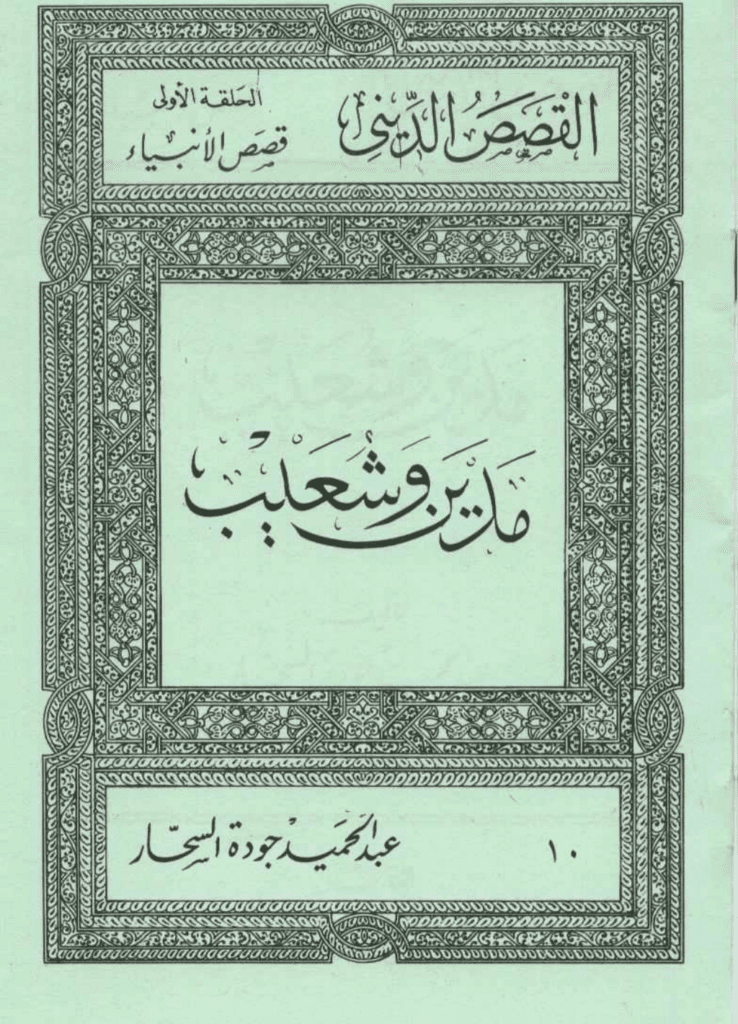 القَصَصُ الدِّينِي
الحلقة الأولى
قصص الأنبياء
مَدْيَن وَشُعَيْب
١٠
عبد الحميد جودة السحّار